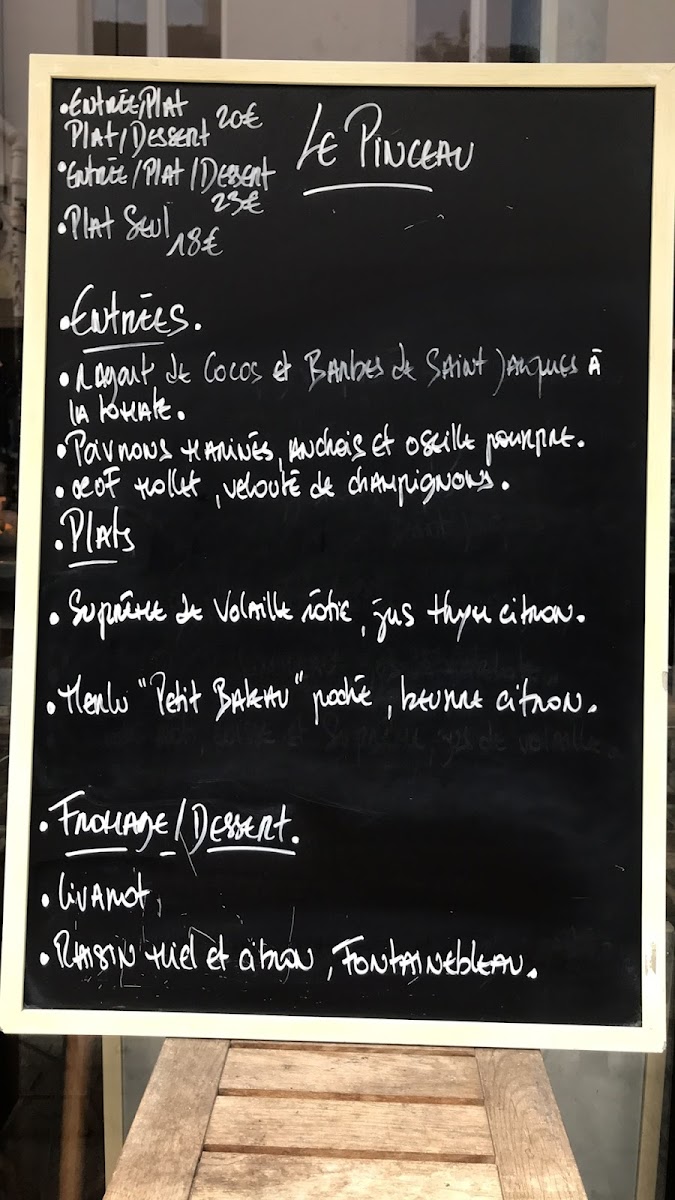 • Entrée/Plat
Plat/Dessert 20€
• Entrée/Plat/Dessert
23€
• Plat Seul
18€
Le Pinceau
• Entrées.
• Ragout de Cocos et Barbes de Saint Jacques à
la tomate.
• Poivrons marinés, anchois et oseille pourpre.
• œuf mollet, velouté de champignons.
• Plats
• Suprême de Volaille rôtie, jus thym citron.
• Merlu "Petit Bateau" poché, beurre citron.
• Fromage/Dessert.
• Livarot,
• Raisin miel et citron, Fontainebleau.